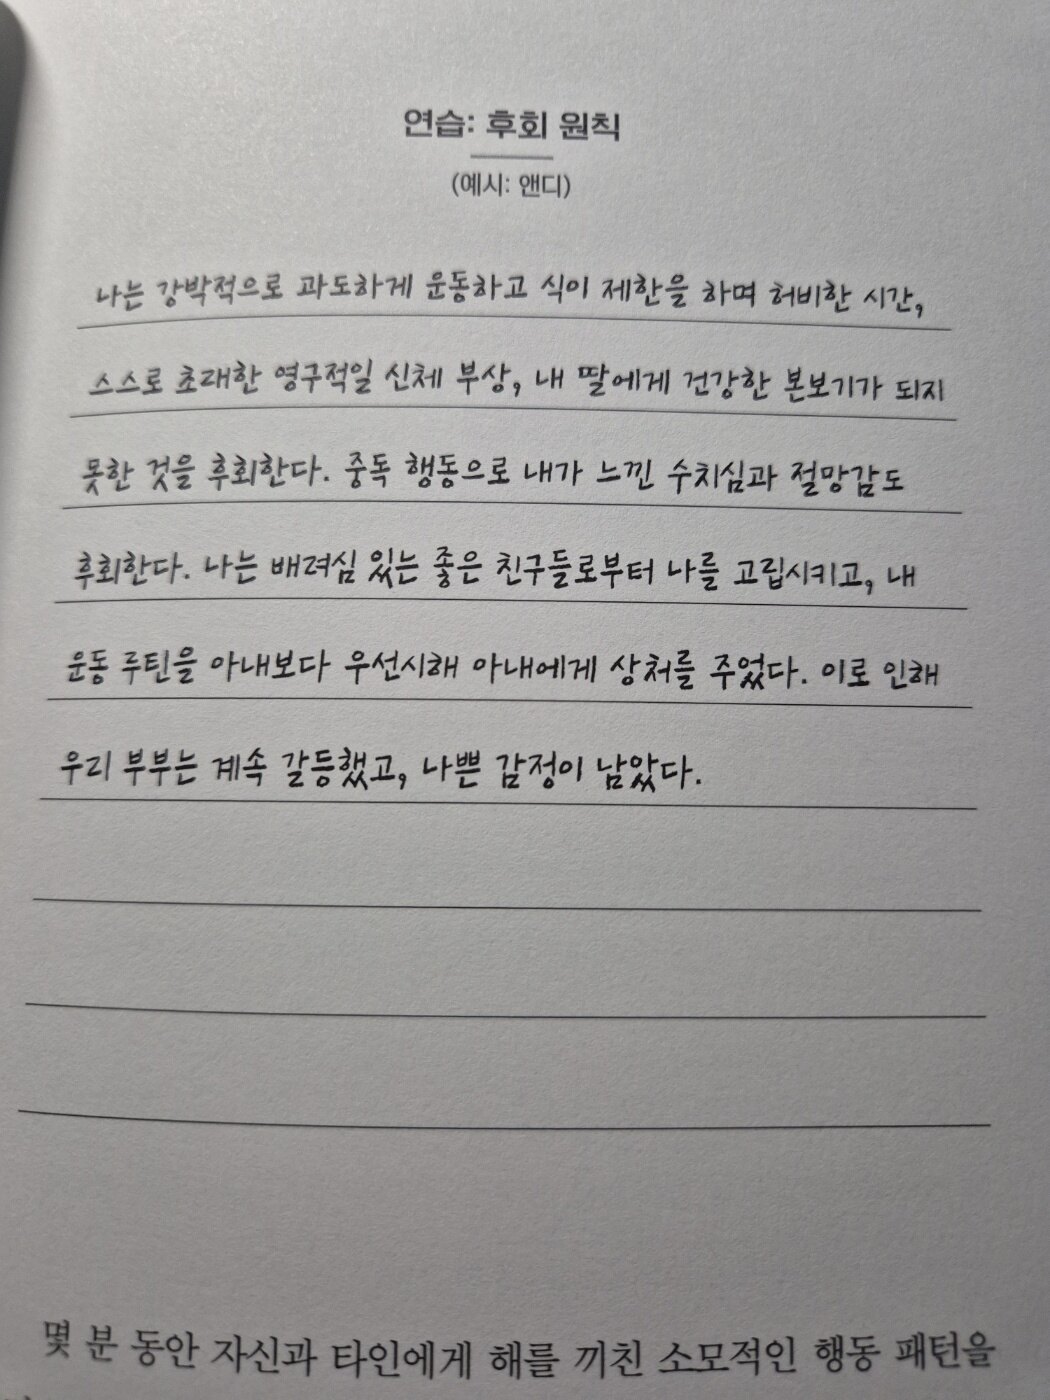 연습: 후회 원칙
(예시: 앤디)
나는 강박적으로 과도하게 운동하고 식이 제한을 하며 허비한 시간,
스스로 초래한 영구적일 신체 부상, 내 딸에게 건강한 본보기가 되지
못한 것을 후회한다. 중독 행동으로 내가 느낀 수치심과 절망감도
후회한다. 나는 배려심 있는 좋은 친구들로부터 나를 고립시키고, 내
운동 루틴을 아내보다 우선시해 아내에게 상처를 주었다. 이로 인해
우리 부부는 계속 갈등했고, 나쁜 감정이 남았다.
몇 분 동안 자신과 타인에게 해를 끼친 소모적인 행동 패턴을